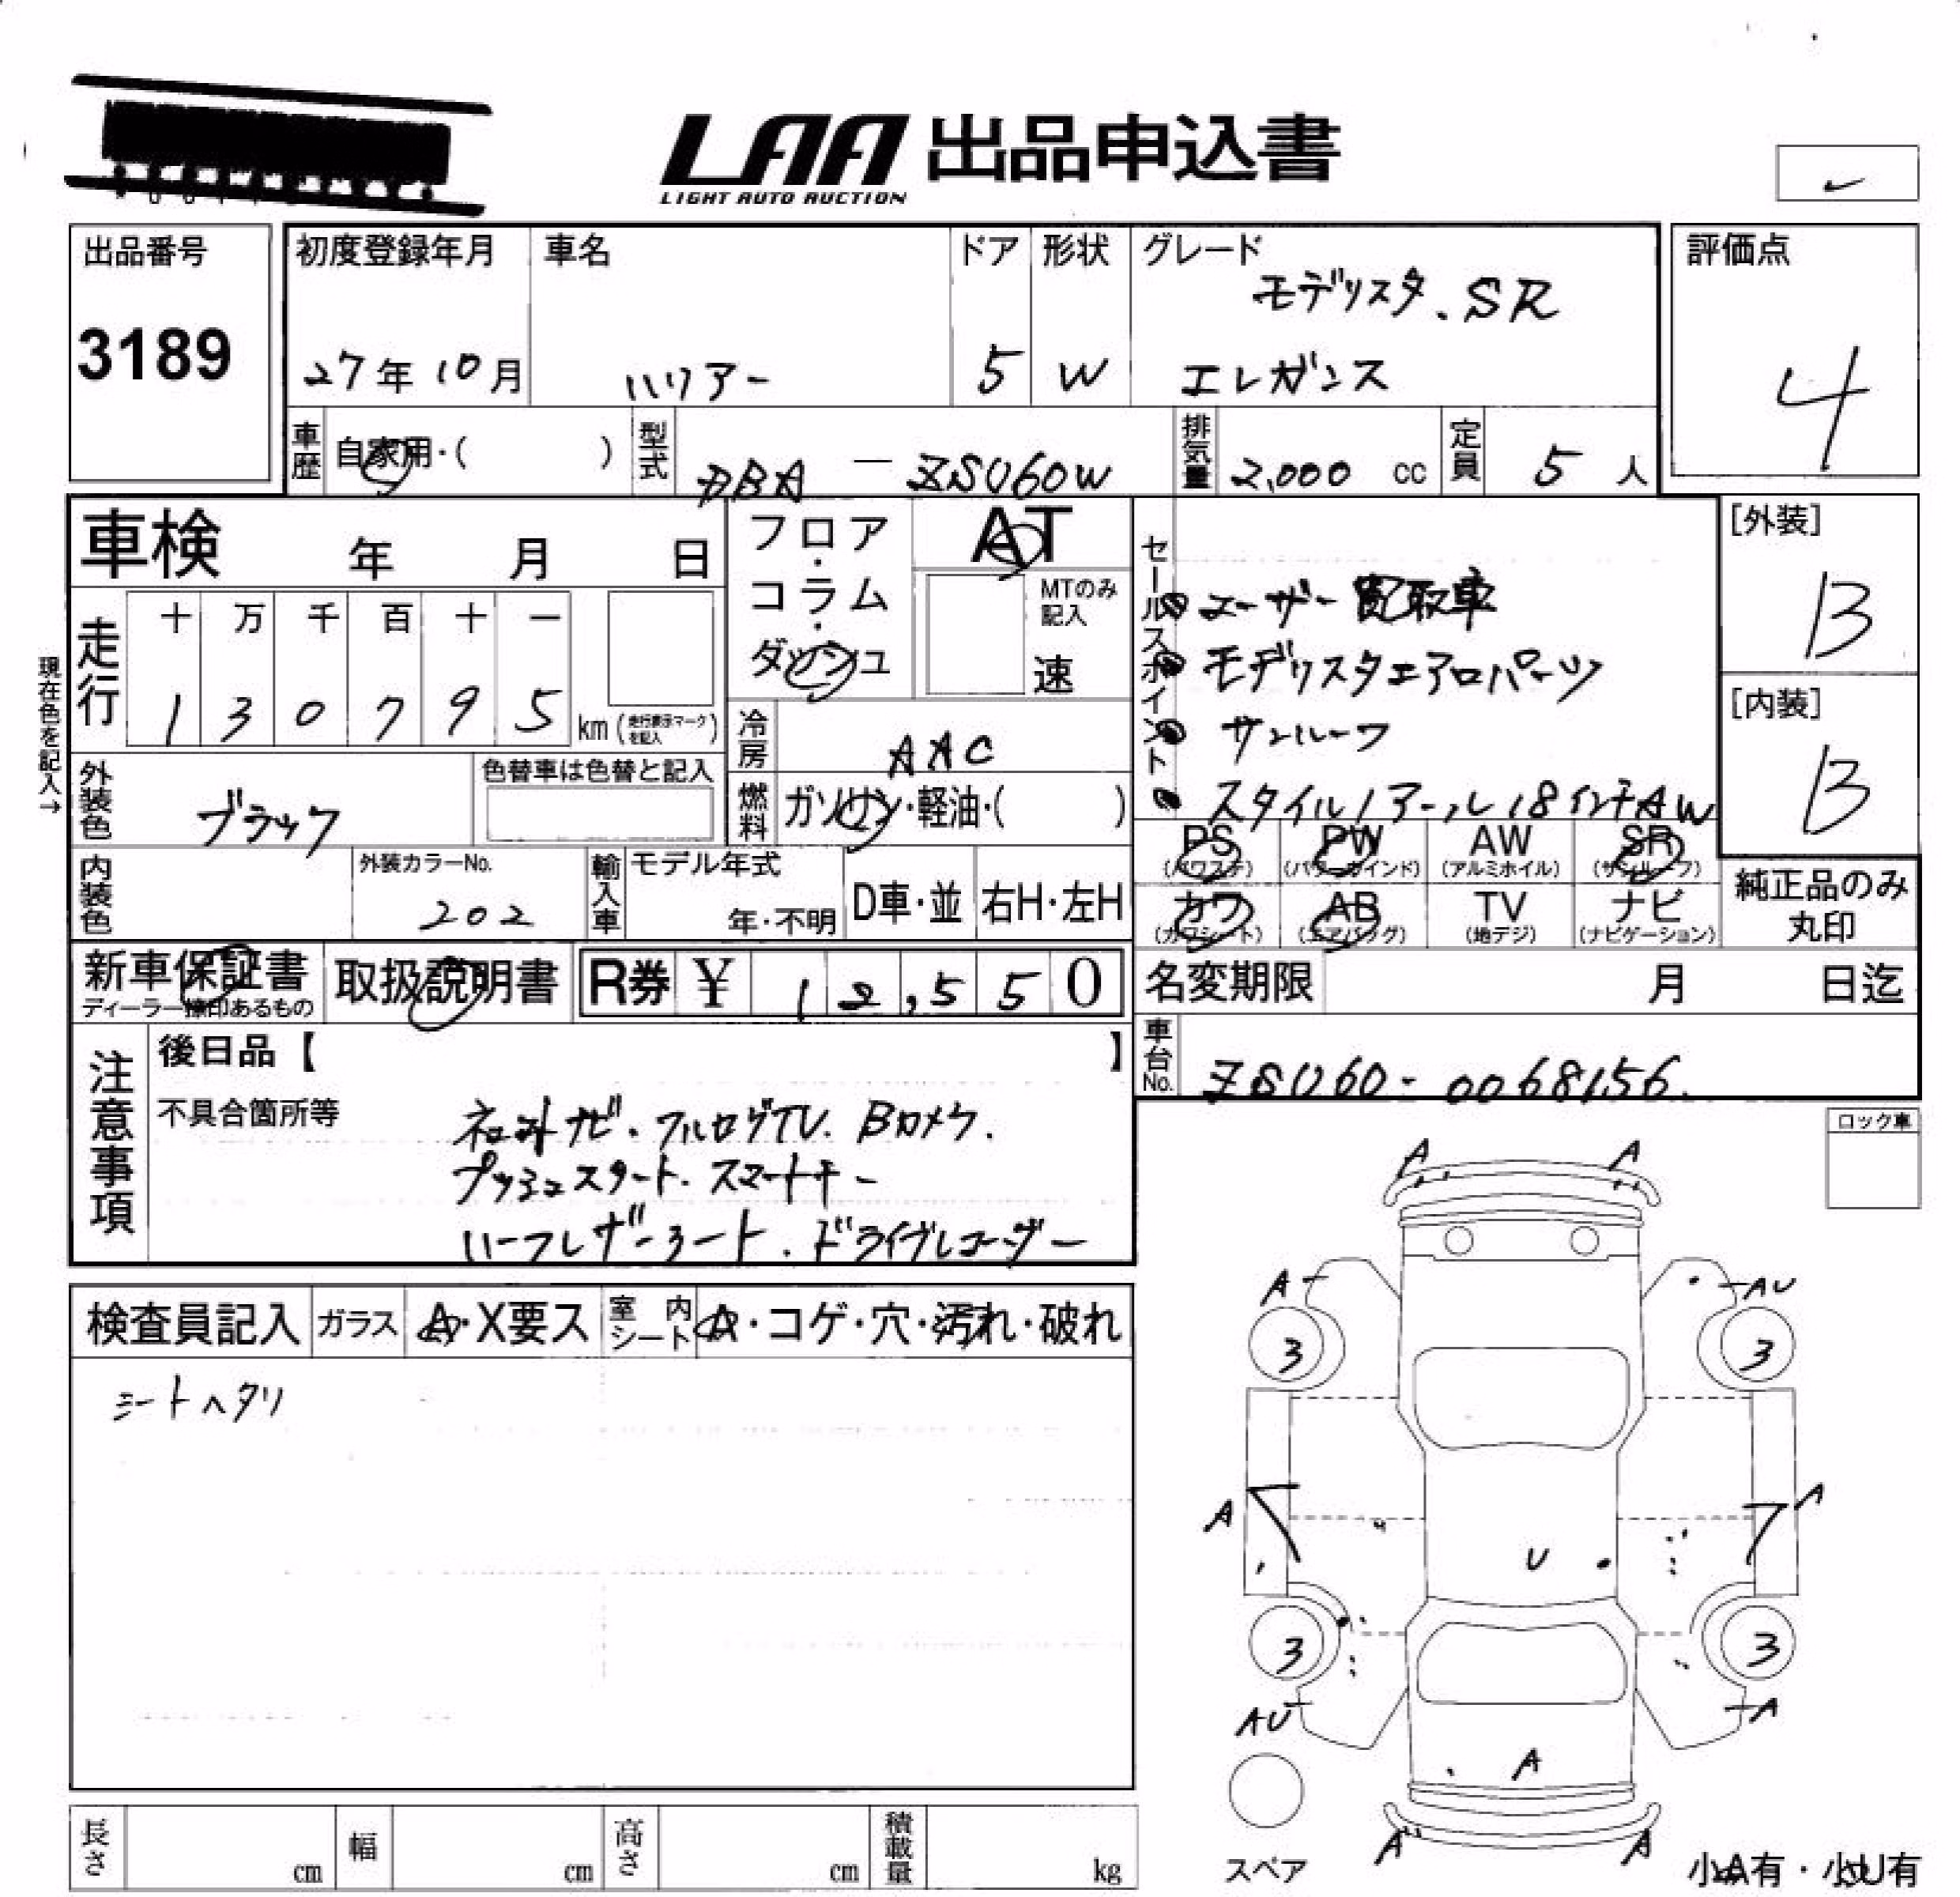 LAA 出品申込書
LIGHT AUTO AUCTION
出品番号
3189
初度登録年月
27年10月
車名
ハリアー
ドア
5
形状
W
グレード
モデリスタ.SR
エレガンス
評価点
4
車歴
自家用・( )
型式
DBA - ZSU60W
排気量
2,000 cc
定員
5 人
車検 年 月 日
フロア・コラム・ダッシュ
AT
MTのみ記入
速
セールスポイント
ユーザー買取車
モデリスタエアロパーツ
サンルーフ
スタイルノアール18インチAW
[外装]
B
[内装]
B
現在色を記入→
走行
十 万 千 百 十 一
1 3 0 7 9 5 km (走行表示マークを記入)
冷房
AAC
外装色
ブラック
色替車は色替と記入
燃料
ガソリン・軽油・( )
PS (パワステ)
PW (パワーウインド)
AW (アルミホイル)
SR (サンルーフ)
カワ (カワシート)
AB (エアバッグ)
TV (地デジ)
ナビ (ナビゲーション)
純正品のみ丸印
内装色
外装カラーNo.
202
輸入車
モデル年式
年・不明
D車・並
右H・左H
新車保証書
ディーラー捺印あるもの
取扱説明書
R券 ¥ 12,550
名変期限 月 日迄
車台No.
ZSU60-0068156.
注意事項
後日品【 】
不具合箇所等
社外ナビ.フルセグTV.Bカメラ.
プッシュスタート.スマートキー
ハーフレザーシート.ドライブレコーダー
ロック車
検査員記入
ガラス
A・X要ス
室内シート
A・コゲ・穴・汚れ・破れ
シートヘタリ
A A
A AU
3 3
A A
U
3 3
AU A
A
A A
スペア
小A有・小U有
長さ cm
幅 cm
高さ cm
積載量 kg